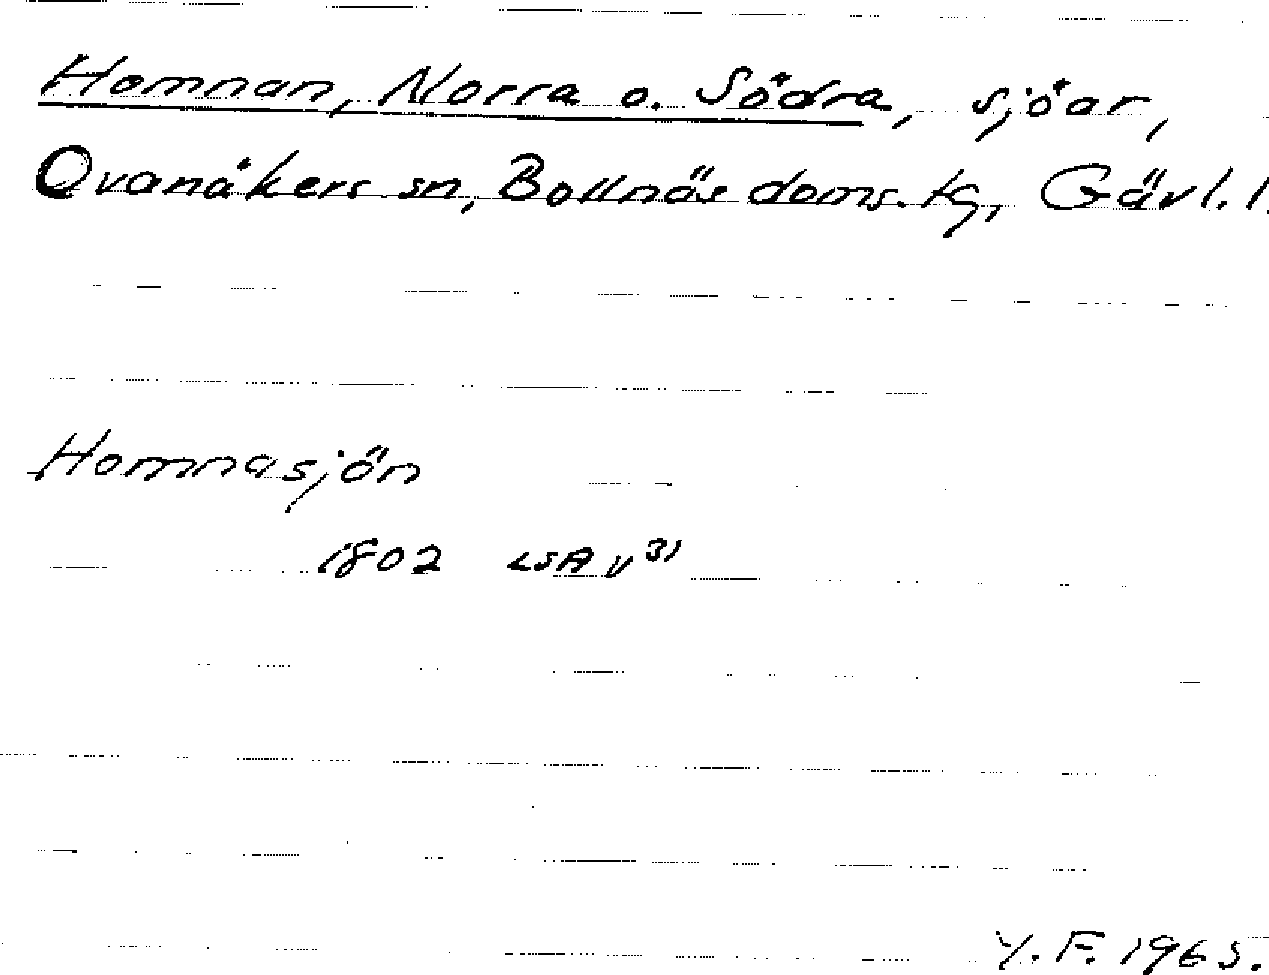 Homnan, Norra o. Södra, sjöar,
Ovanåkers sn, Bollnäs doms. tg, Gävl. l.
Homnasjön
1802 LSA v 31
Y. F. 1965.